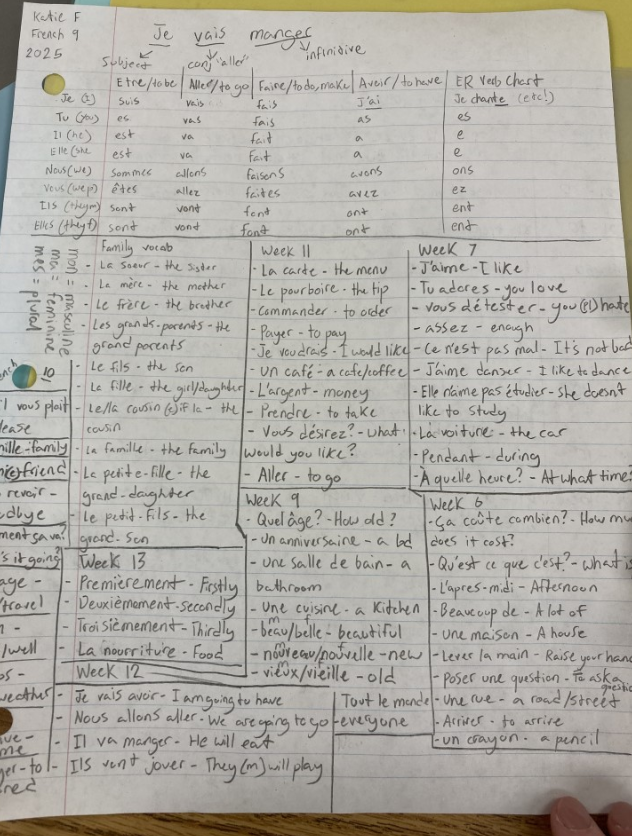 Katie F
French 9
2025
Je vais manger
Subject conj "aller" infinitive
Etre/to be Aller/to go Faire/to do, make Avoir/to have ER Verb Chart
Je (I) suis vais fais J'ai Je chante (etc!)
Tu (you) es vas fais as es
Il (he) est va fait a e
Elle (she est va fait a e
Nous (we) sommes allons faisons avons ons
Vous (we p) êtes allez faites avez ez
Ils (they m) sont vont font ont ent
Elles (they f) sont vont font ont ent
mon = masculine
ma = feminine
mes = plural
Family vocab
- La soeur - the sister
- La mère - the mother
- Le frère - the brother
- Les grands-parents - the
grand parents
- Le fils - the son
- La fille - the girl/daughter
- Le/la cousin (e) if la - the
cousin
- La famille - the family
- La petite-fille - the
grand-daughter
- Le petit-fils - the
grand-son
Week 13
- Premièrement - Firstly
- Deuxièmement - secondly
- Troisièmement - Thirdly
- La nourriture - Food
Week 12
- Je vais avoir - I am going to have
- Nous allons aller - We are going to go
- Il va manger - He will eat
- Ils vont jouer - They (m) will play
Week 11
- La carte - the menu
- Le pourboire - the tip
- Commander - to order
- Payer - to pay
- Je voudrais - I would like
- Un café - a cafe/coffee
- L'argent - money
- Prendre - to take
- Vous désirez? - what
would you like?
- Aller - to go
Week 9
- Quel âge? - How old?
- un anniversaire - a bd
- une salle de bain - a
bathroom
- une cuisine - a kitchen
- beau/belle - beautiful
- nouveau/nouvelle - new
- vieux/vieille - old
Tout le monde
- everyone
Week 7
- J'aime - I like
- Tu adores - you love
- vous détester - you (pl) hate
- assez - enough
- Ce n'est pas mal - It's not bad
- J'aime danser - I like to dance
- Elle n'aime pas étudier - she doesn't
like to study
- La voiture - the car
- Pendant - during
- À quelle heure? - At what time?
Week 6
- Ça coûte combien? - How mu
does it cost?
- Qu'est ce que c'est? - what is
- L'apres-midi - Afternoon
- Beaucoup de - A lot of
- une maison - A house
- Lever la main - Raise your hand
- Poser une question - To ask a
question
- Une rue - a road/street
- Arriver - to arrive
- un crayon - a pencil
10
il vous plait
lease
mille-family
friend
revoir -
dbye
ment ça va?
's it going?
age -
travel
/well
weather
me
ger - to
red